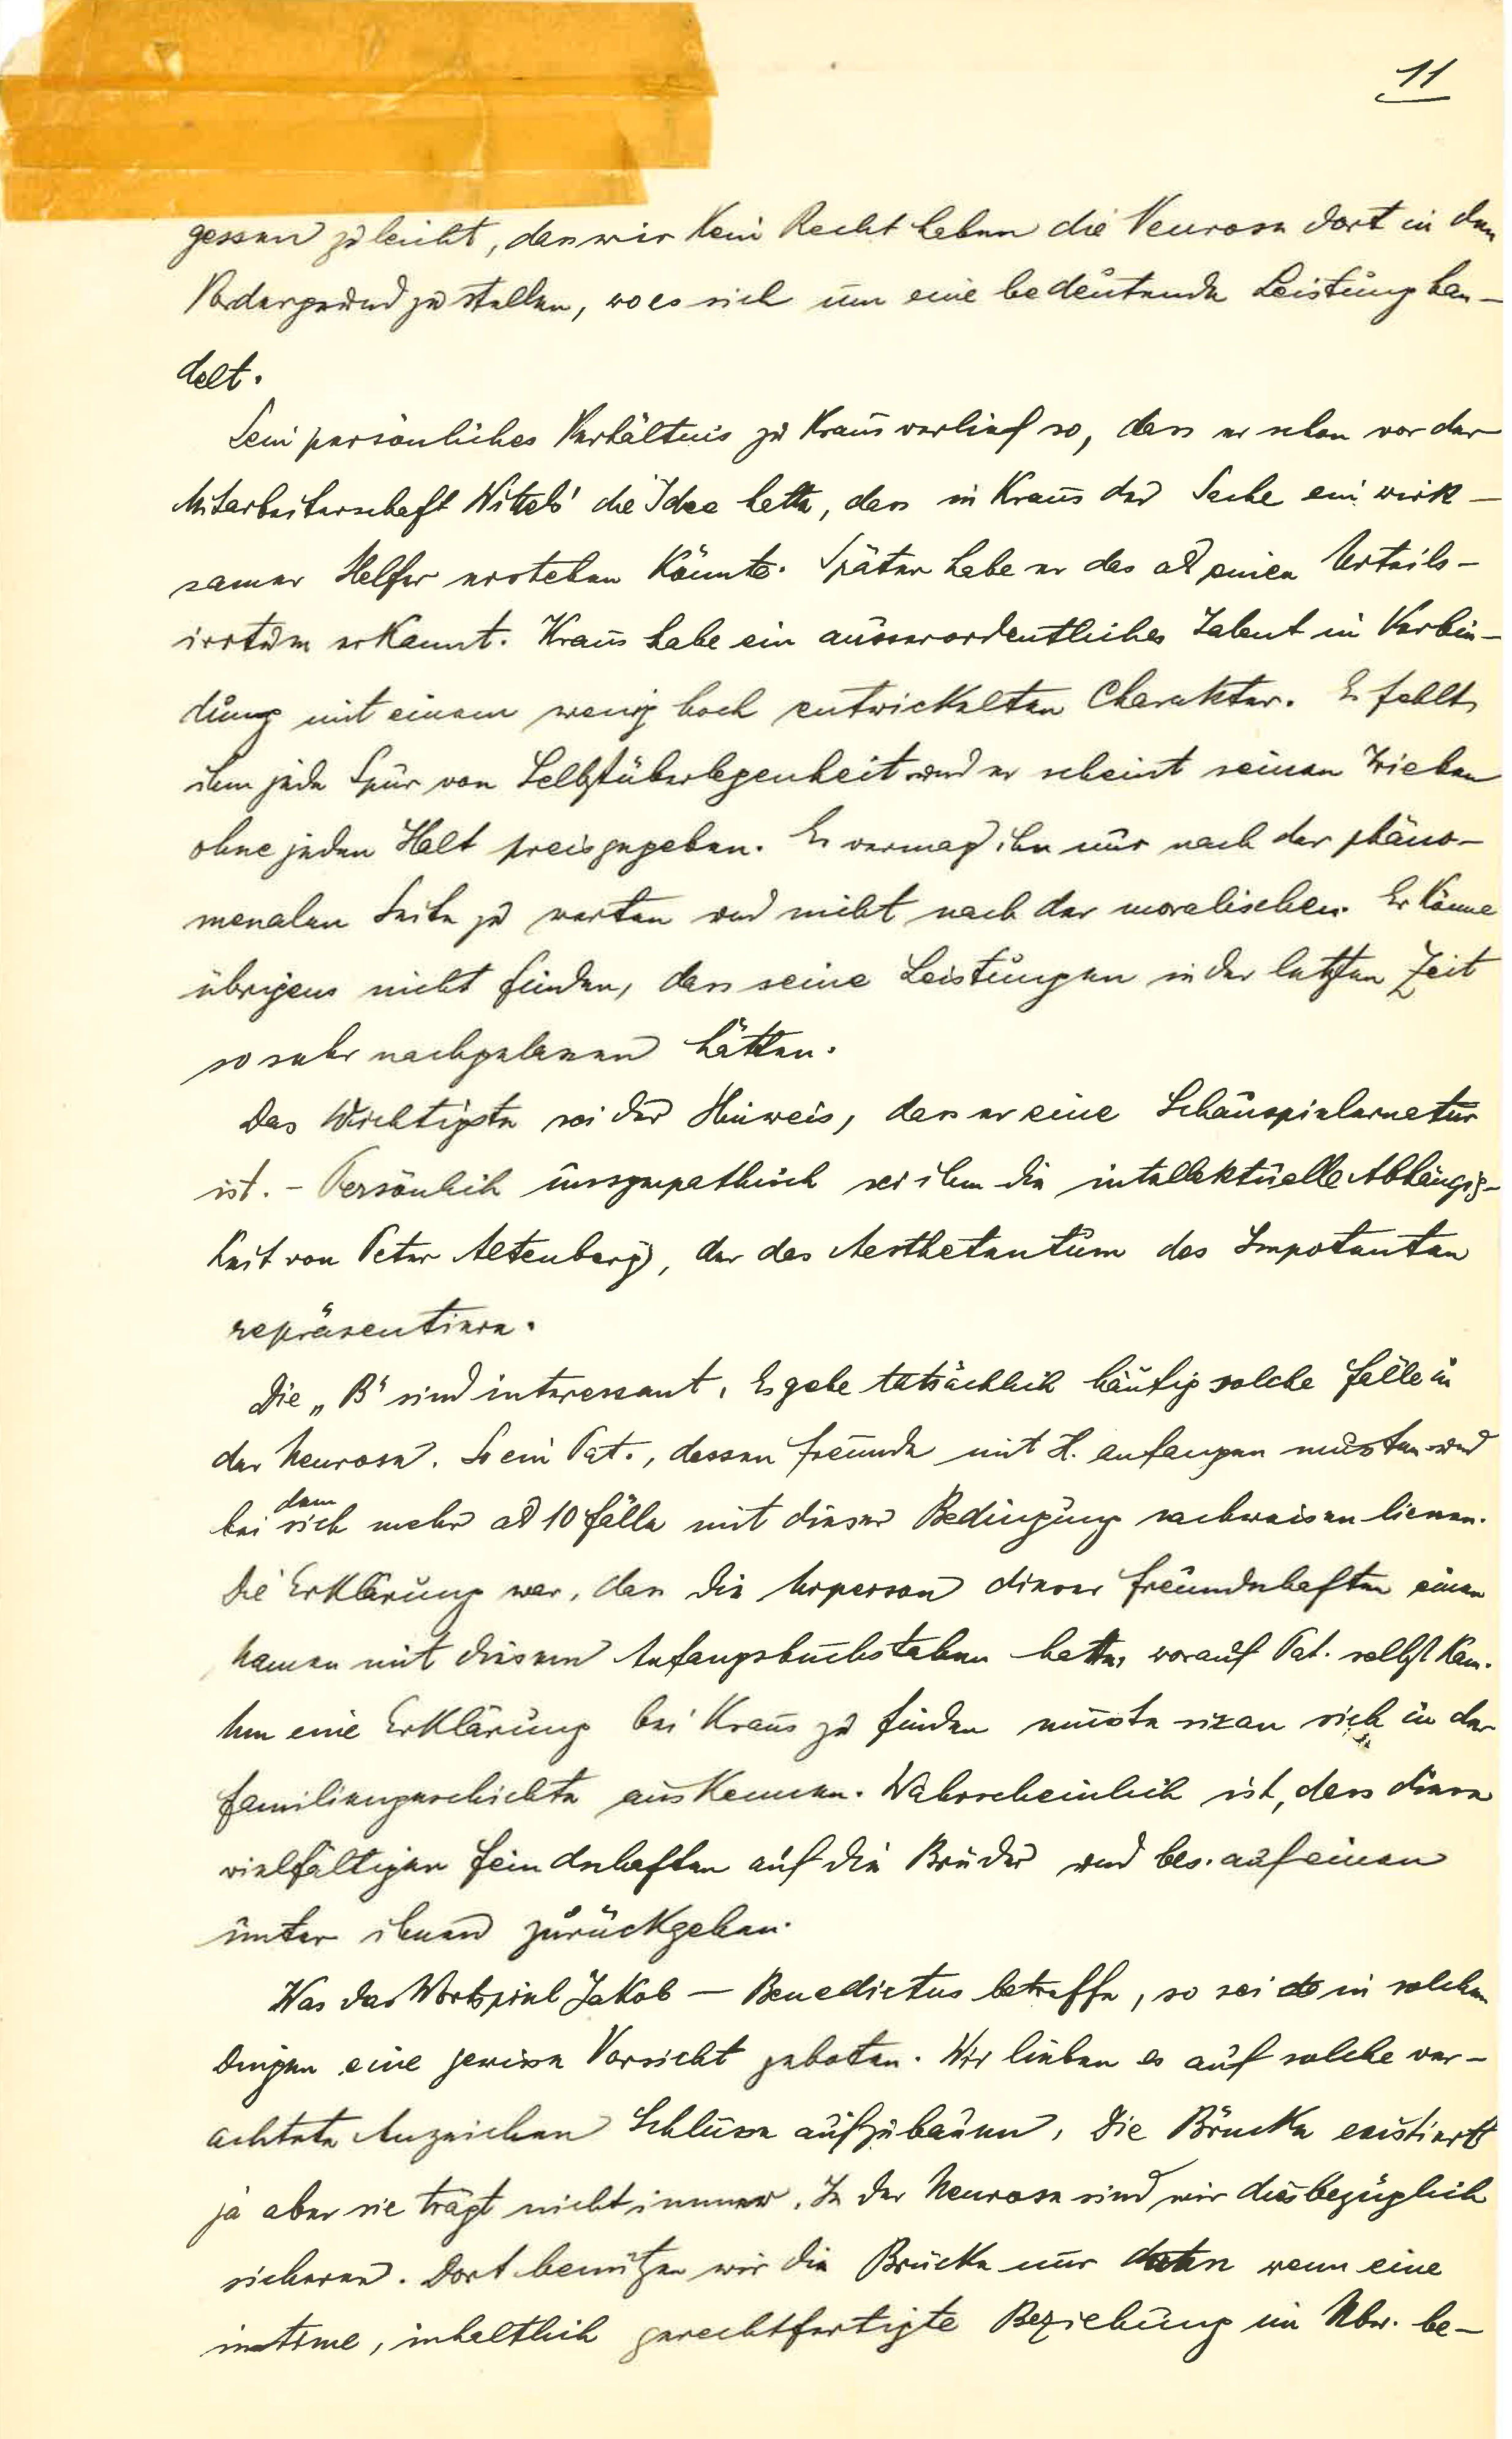 11
gessen zu leicht, dass wir kein Recht haben die Neurose dort in den
Vordergrund zu stellen, wo es sich um eine bedeutende Leistung han-
delt.
Sein persönliches Verhältnis zu Kraus verlief so, dass er schon vor der
Mitarbeiterschaft Wittels' die Idee hatte, dass in Kraus der Sache ein wirk-
samer Helfer erstehen könnte. Später habe er das als einen Urteils-
irrtum erkannt. Kraus habe ein ausserordentliches Talent in Verbin-
dung mit einem wenig hoch entwickelten Charakter. Es fehlt
ihm jede Spur von Selbstüberlegenheit und er scheint seinen Trieben
ohne jeden Halt preisgegeben. Er vermag ihn nur nach der phäno-
menalen Seite zu werten und nicht nach der moralischen. Er könne
übrigens nicht finden, dass seine Leistungen in der letzten Zeit
so sehr nachgelassen hätten.
Das Wichtigste sei der Hinweis, dass er eine Schauspielernatur
ist. - Persönlich unsympathisch sei ihm die intellektuelle Abhängig-
keit von Peter Altenberg, der das Aesthetentum des Impotenten
repräsentiere.
Die „B" sind interessant. Es gebe tatsächlich häufig solche Fälle in
der Neurose. So ein Pat., dessen Freunde mit H. anfangen mussten und
bei dem sich mehr als 10 Fälle mit dieser Bedingung nachweisen liessen.
Die Erklärung war, dass die Urperson dieser Freundschaften einen
Namen mit diesem Anfangsbuchstaben hatte, worauf Pat. selbst kam.
Um eine Erklärung bei Kraus zu finden müsste man sich in der
Familiengeschichte auskennen. Wahrscheinlich ist, dass diese
vielfältigen Feindschaften auf die Brüder und bes. auf einen
unter ihnen zurückgehen.
Was das Wortspiel Jakob — Benedictus betreffe, so sei in solchen
Dingen eine gewisse Vorsicht geboten. Wir lieben es auf solche ver-
achtete Anzeichen Schlüsse aufzubauen. Die Brücke existiert
ja aber sie trägt nicht immer. In der Neurose sind wir diesbezüglich
sicherer. Dort benützen wir die Brücke nur dann wenn eine
intime, inhaltlich gerechtfertigte Beziehung im Ubw. be-